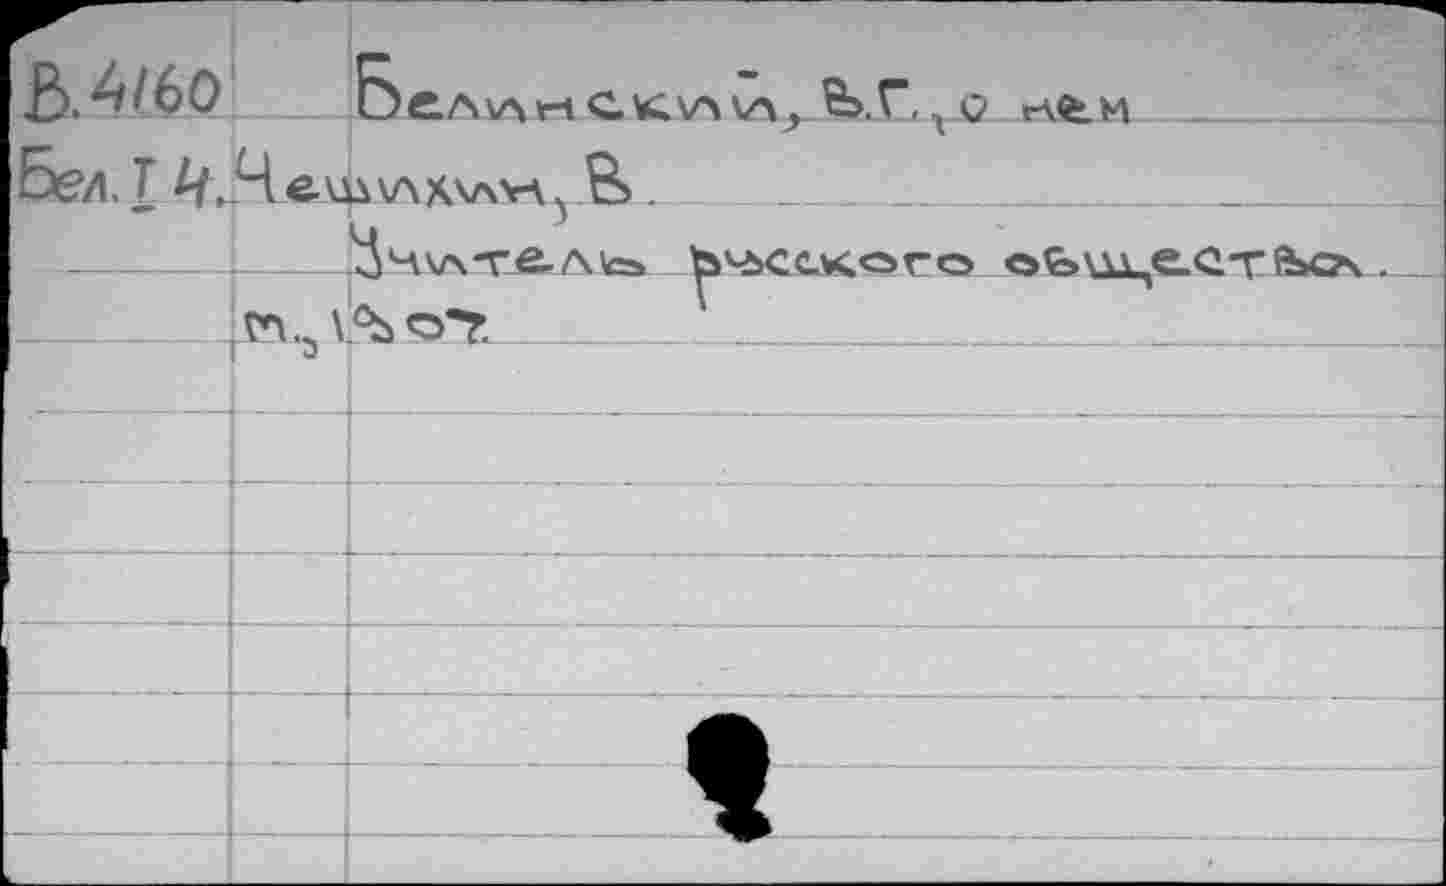 В.4160 Белинский, В.Г., о нем
Бел. I 4. Чешихин, В.
Учитель русского общества.
m., 1907.